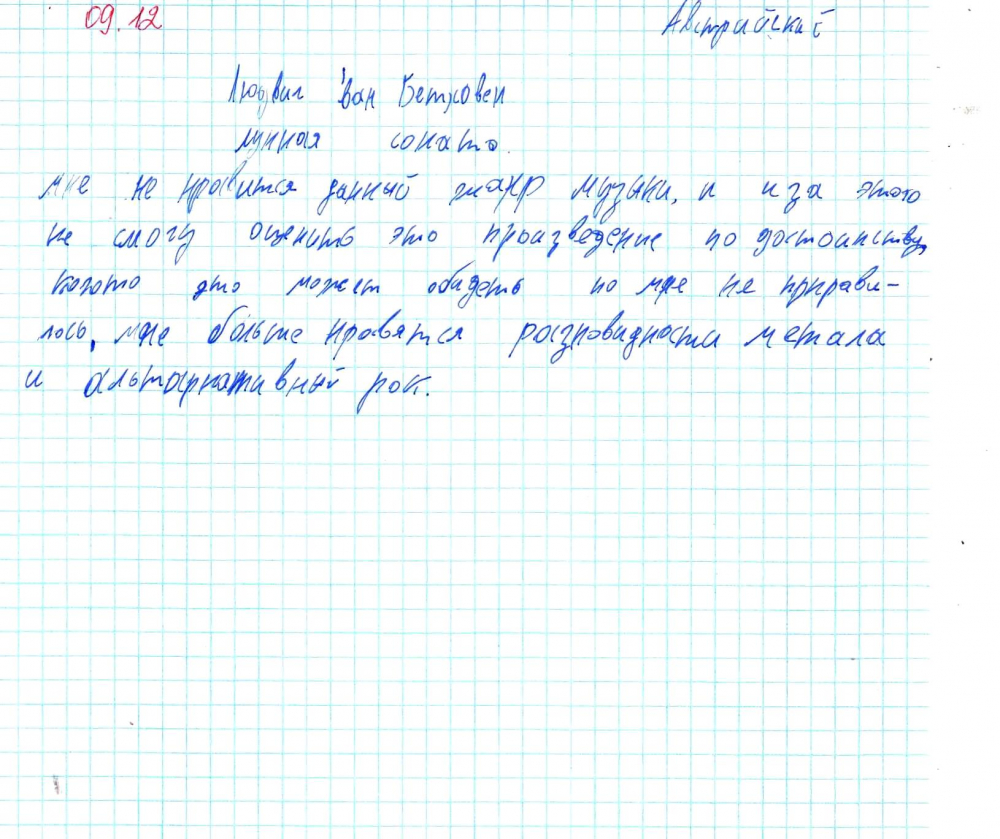 09.12
Австрийский
Людвиг Ван Бетховен
лунная соната.
мне не нравится данный жанр музыки, и иза этого
не смогу оценить это произведение по достоинству,
когото это может обидеть но мне не пнрави-
лось, мне больше нравятся разновидности метала
и альтарнативный рок.